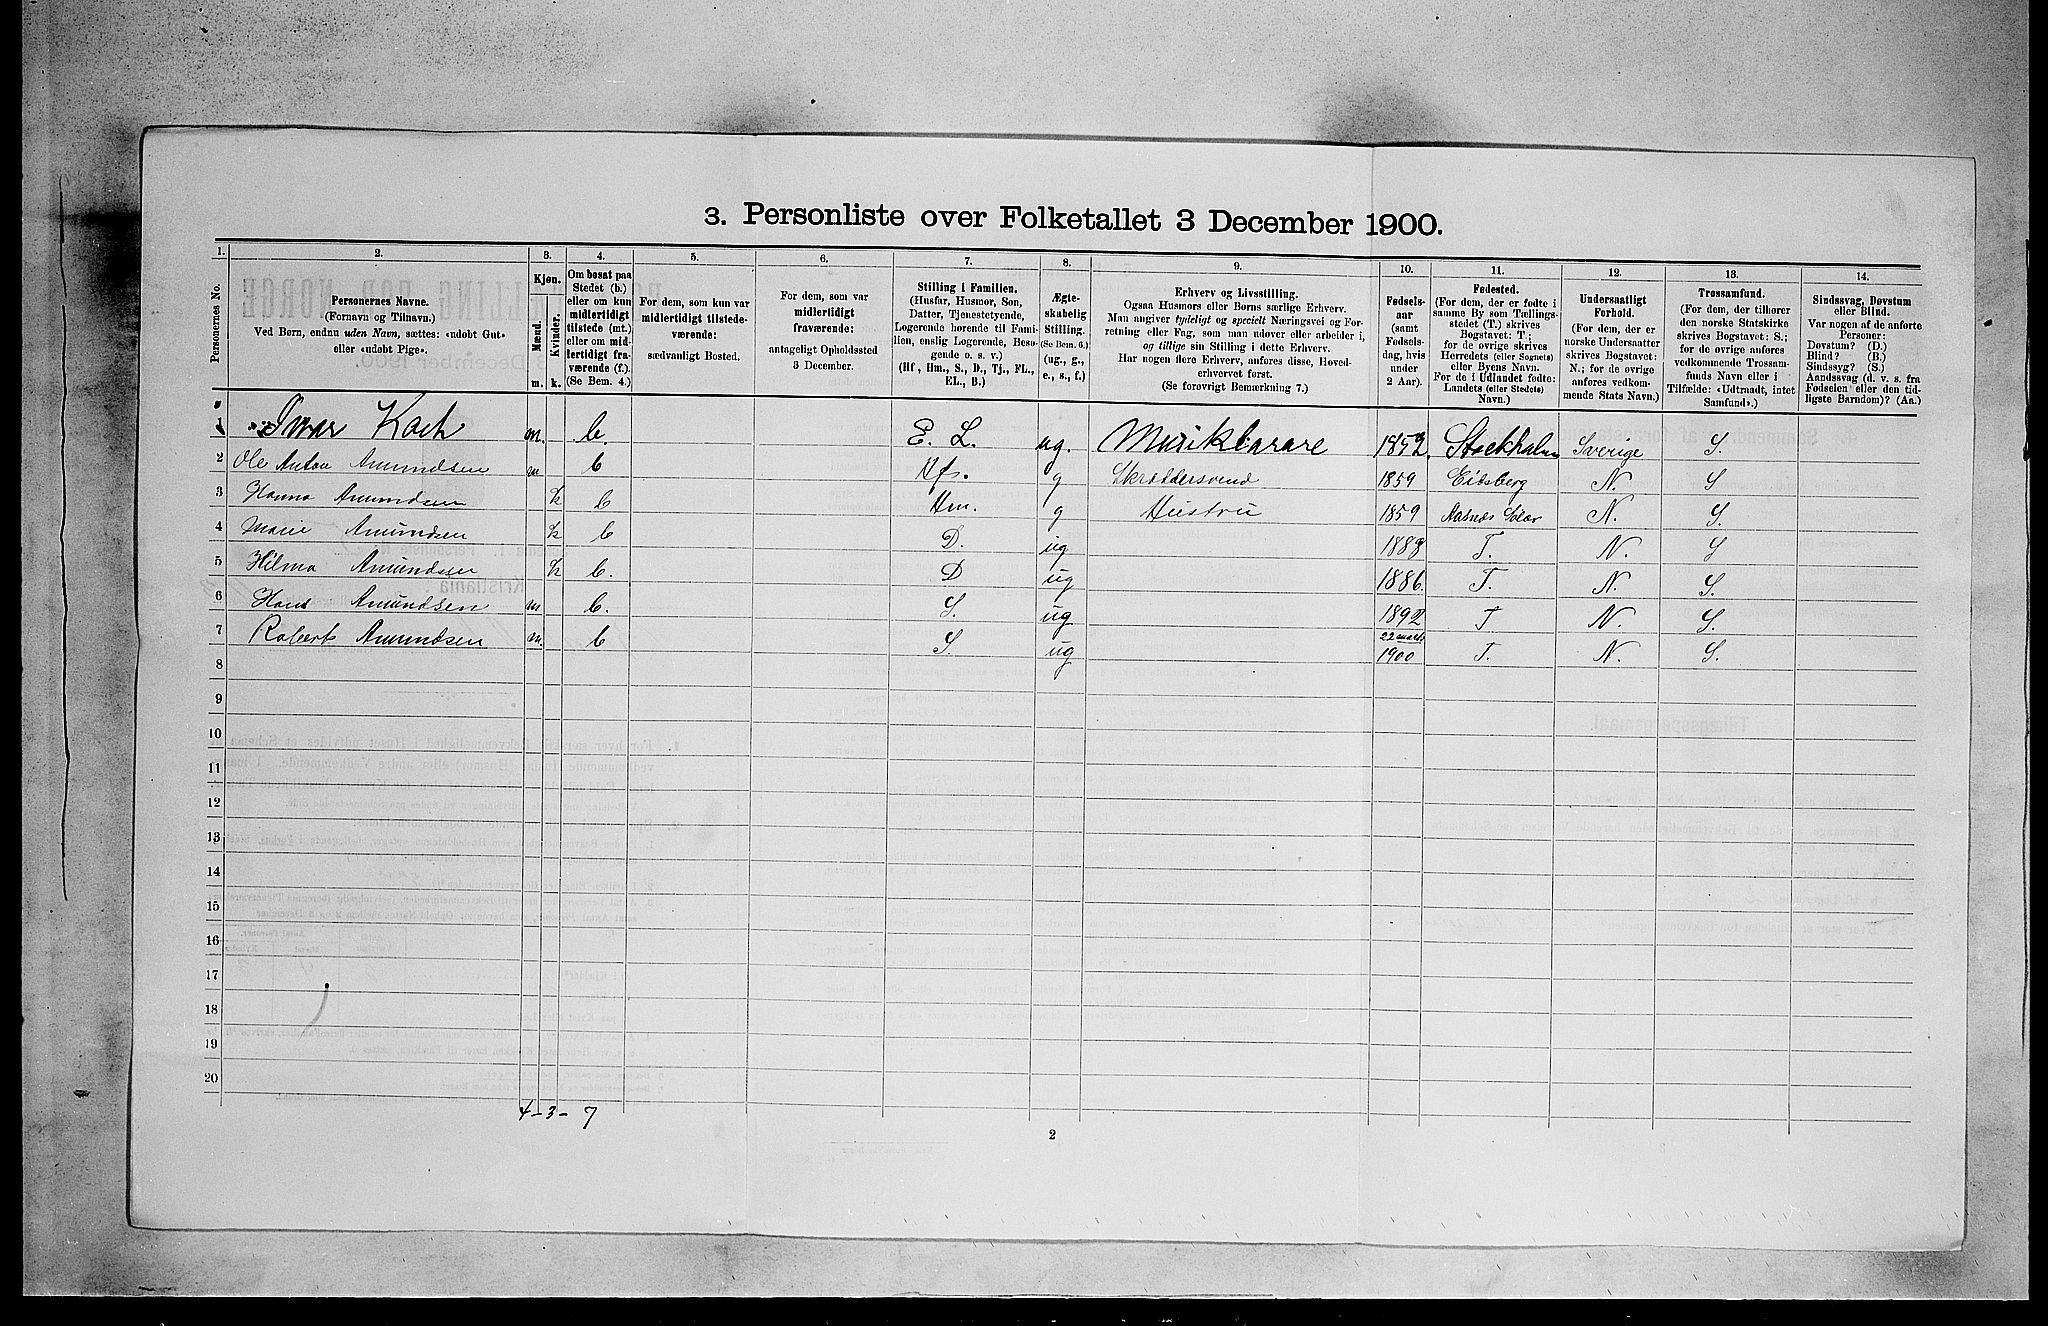 3. Personliste over Folketallet 3 December 1900.
1. 2. 3. 4. 5. 6. 7. 8. 9. 10. 11. 12. 13. 14.
Personernes No.
Personernes Navne.
(Fornavn og Tilnavn.)
Ved Børn, endnu uden Navn, sættes: «udøbt Gut»
eller «udøbt Pige».
Kjøn.
Mænd.
Kvinder.
m. k.
Om bosat paa
Stedet (b.)
eller om kun
midlertidigt
tilstede (mt.)
eller om mid-
lertidigt fra-
værende (f.).
(Se Bem. 4.)
For dem, som kun var
midlertidigt tilstede-
værende:
sædvanligt Bosted.
For dem, som var
midlertidigt
fraværende:
antageligt Opholdssted
3 December.
Stilling i Familien.
(Husfar, Husmor, Søn,
Datter, Tjenestetyende,
Logerende hørende til Fami-
lien, enslig Logerende, Besø-
gende o. s. v.)
(Hf, Hm., S., D., Tj., FL.,
EL., B.)
Ægte-
skabelig
Stilling.
(Se Bem. 6.)
(ug., g.,
e., s., f.)
Erhverv og Livsstilling.
Ogsaa Husmors eller Børns særlige Erhverv.
Man angiver tydeligt og specielt Næringsvei og For-
retning eller Fag, som man udøver eller arbeider i,
og tillige sin Stilling i dette Erhverv.
Har nogen flere Erhverv, anføres disse, Hoved-
erhvervet først.
(Se forøvrigt Bemærkning 7.)
Fødsels-
aar
(samt
Fødsels-
dag, hvis
under
2 Aar).
Fødested.
(For dem, der er fødte i
samme By som Tællings-
stedet (T.) skrives
Bogstavet: T.;
for de øvrige skrives
Herredets (eller Sognets)
eller Byens Navn.
For de i Udlandet fødte:
Landets (eller Stedets)
Navn.)
Undersaatligt
Forhold.
(For dem, der er
norske Undersaatter
skrives Bogstavet:
N.; for de øvrige
anføres vedkom-
mende Stats Navn.)
Trossamfund.
(For dem, der tilhører
den norske Statskirke
skrives Bogstavet: S.;
for de øvrige anføres
vedkommende Trossam-
funds Navn eller i
Tilfælde: «Udtraadt, intet
Samfund».)
Sindssvag, Døvstum
eller Blind.
Var nogen af de anførte
Personer:
Døvstum? (D.)
Blind? (B.)
Sindssyg? (S.)
Aandssvag (d. v. s. fra
Fødselen eller den tid-
ligste Barndom)? (Aa.)
1 Ivar Koch m. b. E. L. ug. Musiklärare 1852. Stockholm Sverige S.
2 Ole Anton Amundsen m b Hf. g Skræddersvend 1859 Eidsberg N. S
3 Hanna Amundsen k b Hm. g Hustru 1859 Aasnæs Solør N. S.
4 Marie Amundsen k b D. ug T. N. S
5 Hilma Amundsen k b. D ug 1886. T. N. S.
6 Hans Amundsen m b. S. ug 1892 T N. S.
7 Robert Amundsen m. b S. ug 22 mars 1900 T. N. S.
8
9
10
11
12
13
14
15
16
17
18
19
20
4 - 3 - 7
2